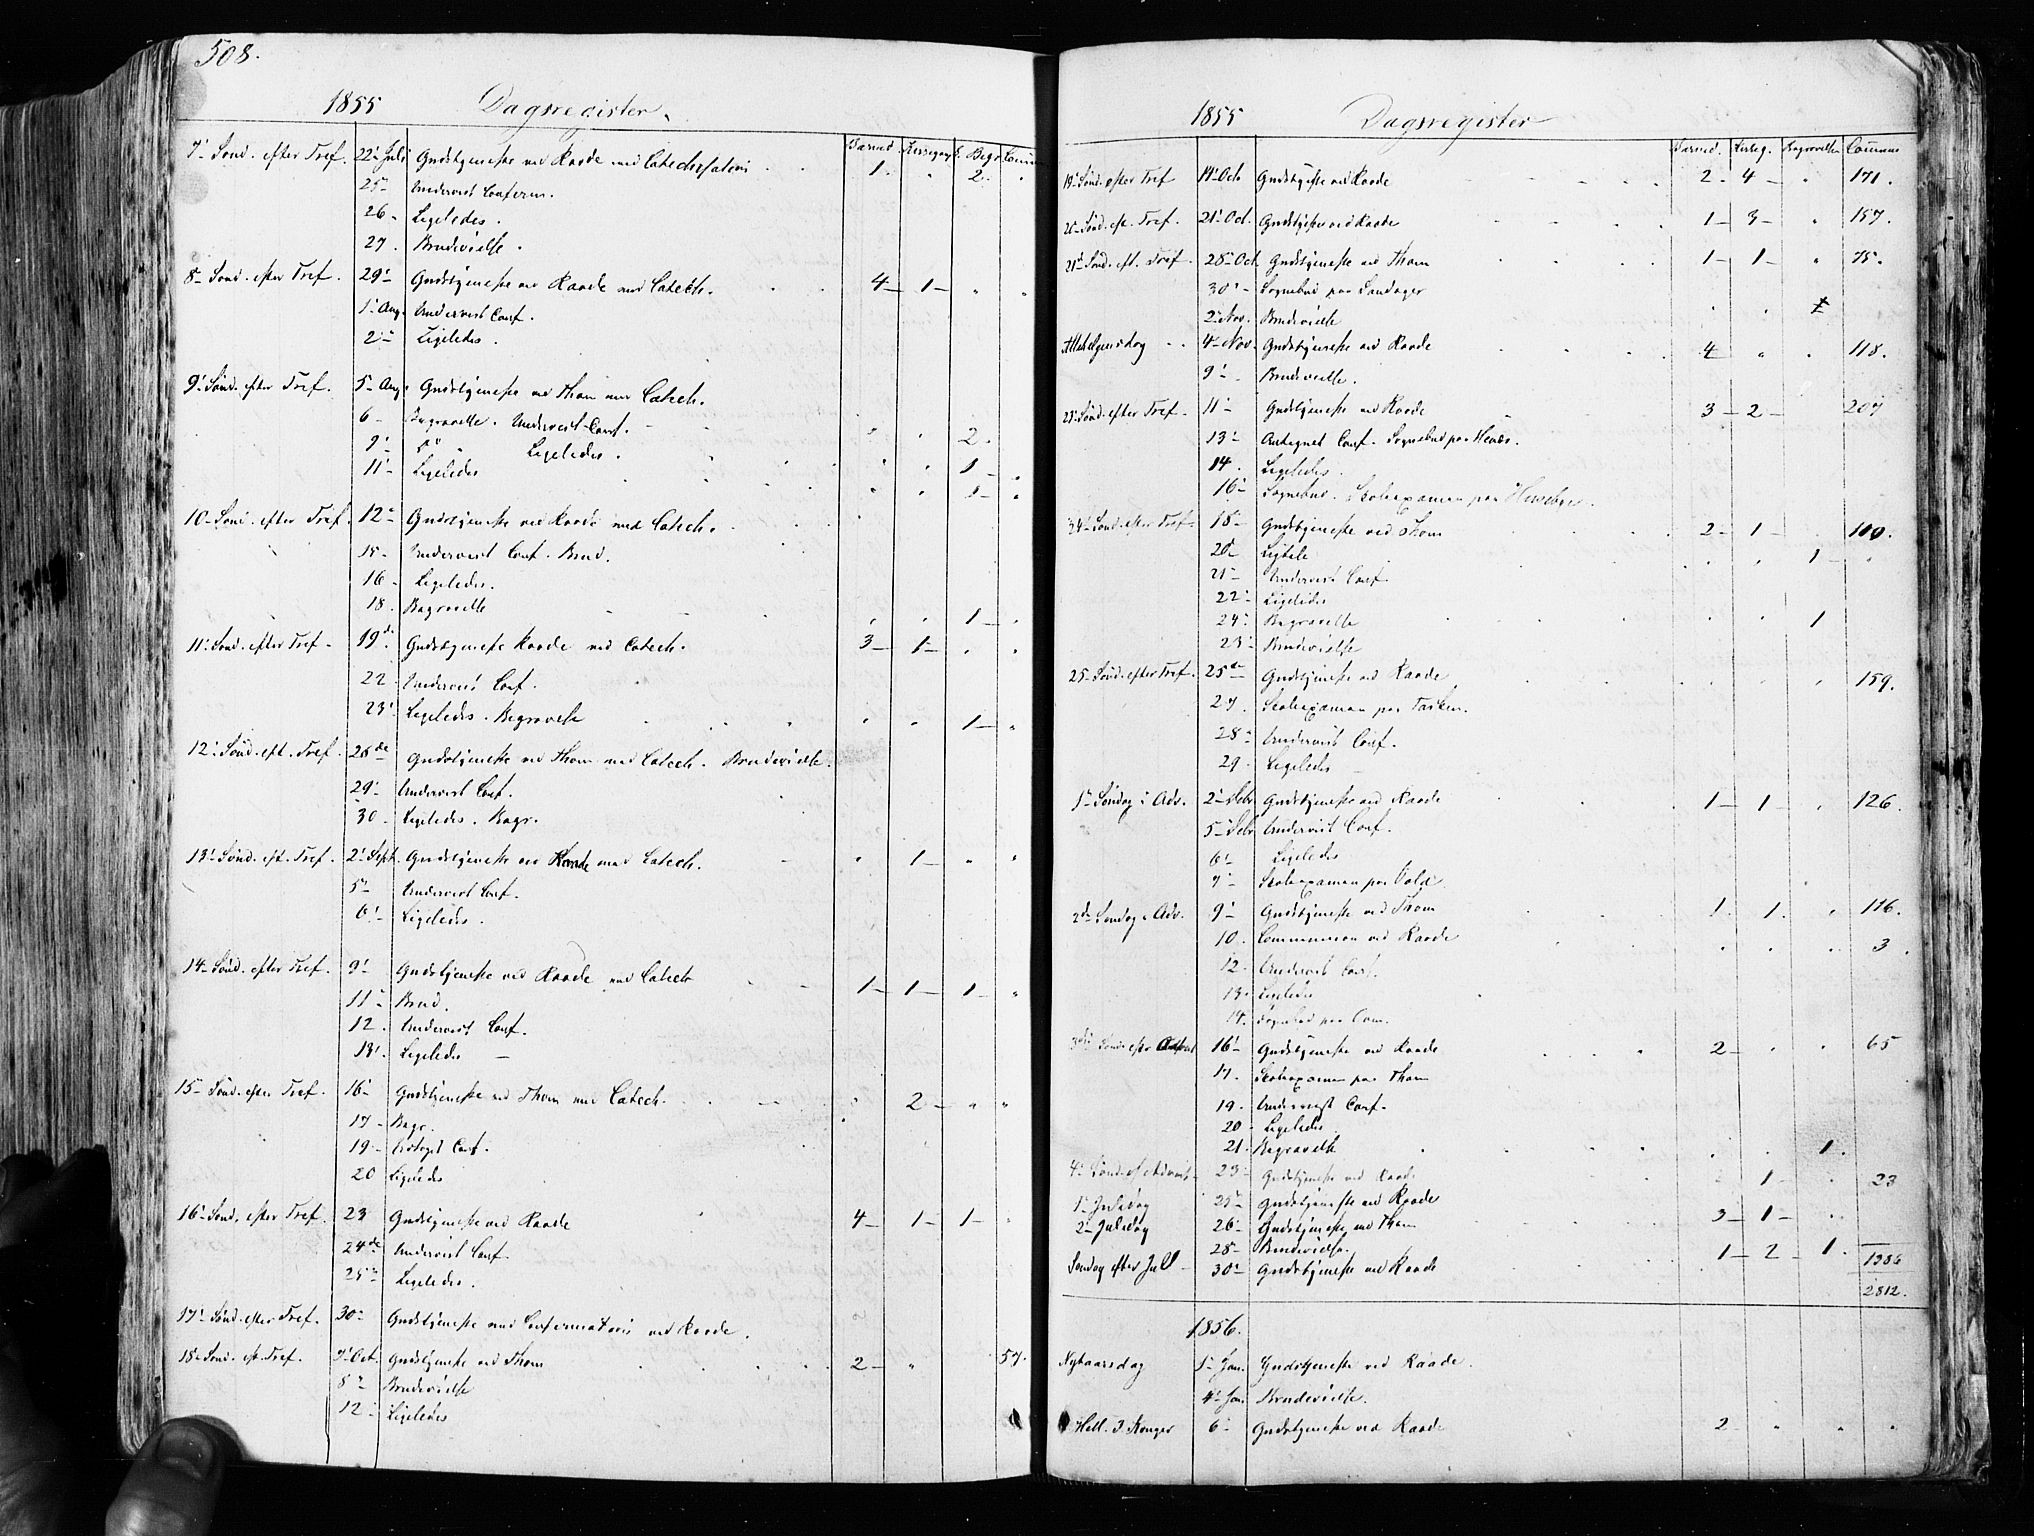 508.
1855 Dagsregister.
Barned. Kirkegang. Begr. Comm.
7' Sønd. efter Tref. 22' Juli Gudstjeneste ved Raade med Catechisation 1. " 2. "
25- Undervist Conferm.
26- Ligeledes.
27. Brudevielse.
8- Sønd. efter Tref. 29' Gudstjeneste ved Raade med Catech. 4- 1- " "
1' Aug. Undervist Conf.
2- Ligeledes.
9' Sønd. efter Tref. 5- Aug. Gudstjeneste ved Thom med Catech.
6- Begravelse. Undervist Conf. " " 2.
9'- Ligeledes. " " 1- "
11'- Ligeledes
10- Sønd. efter Tref. 12- Gudstjeneste ved Raade med Catech.
15- Undervist Conf. Brud.
16- Ligeledes.
18. Begravelse 1-
11' Sønd. efter Tref- 19de Gudstjeneste Raade med Catech. 3- 1- " "
22- Undervist Conf.
23' Ligeledes. Begravelse " " 1- "
12' Sønd. eft. Tref. 26de Gudstjeneste ved Thom med Catech. Brudevielse.
29'- Undervist Conf.
30- Ligeledes. Begr.
13' Sønd. eft. Tref. 2' Sept. Gudstjeneste ved Raade med Catech. " 1- " "
5- Undervist Conf.
6'- Ligeledes.
14- Sønd. efter Tref. 9'- Gudstjeneste ved Raade med Catech 1- 1- 1- "
11- Brud.
12. Undervist Conf.
13'. Ligeledes -
15- Sønd. efter Tref. 16- Gudstjeneste ved Thom med Catech. " 2- " "
17- Begr.
19- Conf.
20 Ligeledes
16' Sønd. efter Tref. 23 Gudstjeneste ved Raade 4- 1- 1- "
24de Undervist Conf.
25- Ligeledes.
17' Sønd. efter Tref. 30- Gudstjeneste med Confirmation ved Raade.
18- Sønd. eft. Tref. 7' Oct. Gudstjeneste ved Thom 2- " 57.
8- Brudevielse
12- Ligeledes
1855 Dagsregister
Barned. Kirkeg. Begravelse Commun
19' Sønd. efter Tref 14' Oct Gudstjeneste ved Raade 2- 4- " 171.
20- Sønd. eft. Tref. 21' Oct. Gudstjeneste ved Raade 1- 3- " 157.
21' Sønd. eft. Tref. 28- Oct Gudstjeneste ved Thom 1- 1- " 75.
30'- Sognebud paa
2- Nov. Brudevielse
Allehelgensdag 4- Nov. Gudstjeneste ved Raade 4- " " 118.
9'- Brudevielse.
23' Sønd. efter Tref- 11'- Gudstjeneste ved Raade 3- 2- 207
13'- Antegnet Conf. Sognebud paa
14. Ligeledes.
16- Sognebud. Skolexamen paa Huseby.
24' Sønd. efter Tref. 18- Gudstjeneste ved Thom 2- 1- 110.
20- 1-
21- Undervist Conf.
22- Ligeledes
24- Begravelse 1
23- Brudevielse
25- Sønd. efter Tref. 25de Gudstjeneste ved Raade 159.
27. Skolexamen paa
28- Undervist Conf.
29- Ligeledes -
1- Søndag i Adv. 2'- Debr Gudstjeneste ved Raade 1- 1- " 126.
5- Debr Undervist Conf.
6'- Ligeledes
7- Skolexamen paa Vold
2de Søndag i Adv. 9'- Gudstjeneste ved Thom 1. 1. " 116.
10. Communion ved Raade 3.
12. Undervist Conf.
13. Ligeledes
14. Sognebud paa
16'- Gudstjeneste ved Raade 2- " " 65
17. Skolexamen paa Thom
19. Undervist Conf.
20- Ligeledes
21. Begravelse 1.
4' Sønd. ef Advent 23- Gudstjeneste ved Raade 1- 23
1- Juledag 25- Gudstjeneste ved Raade
2- Juledag 26- Gudstjeneste ved Thom 3- 1-
28- Brudevielse.
Søndag efter Jull 30- Gudstjeneste ved Raade 1- 2- 1. 1386
2812.
1856.
Nytaarsdag 1- Jan. Gudstjeneste ved Raade.
4' Jan. Brudevielse.
Hell. 3 Konger 6- Gudstjeneste ved Raade 2- " " "